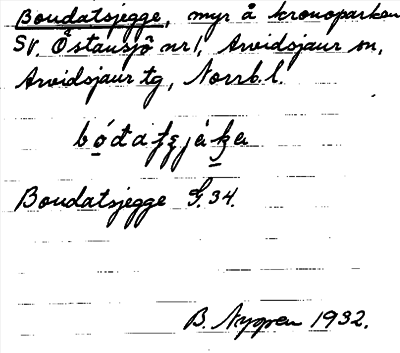 Boudatsjegge, myr å kronoparken
SV. Östansjö nr 1, Arvidsjaur sn,
Arvidsjaur tg, Norrb. l.
Boudatsjegge G. 34.
B. Nygren 1932.